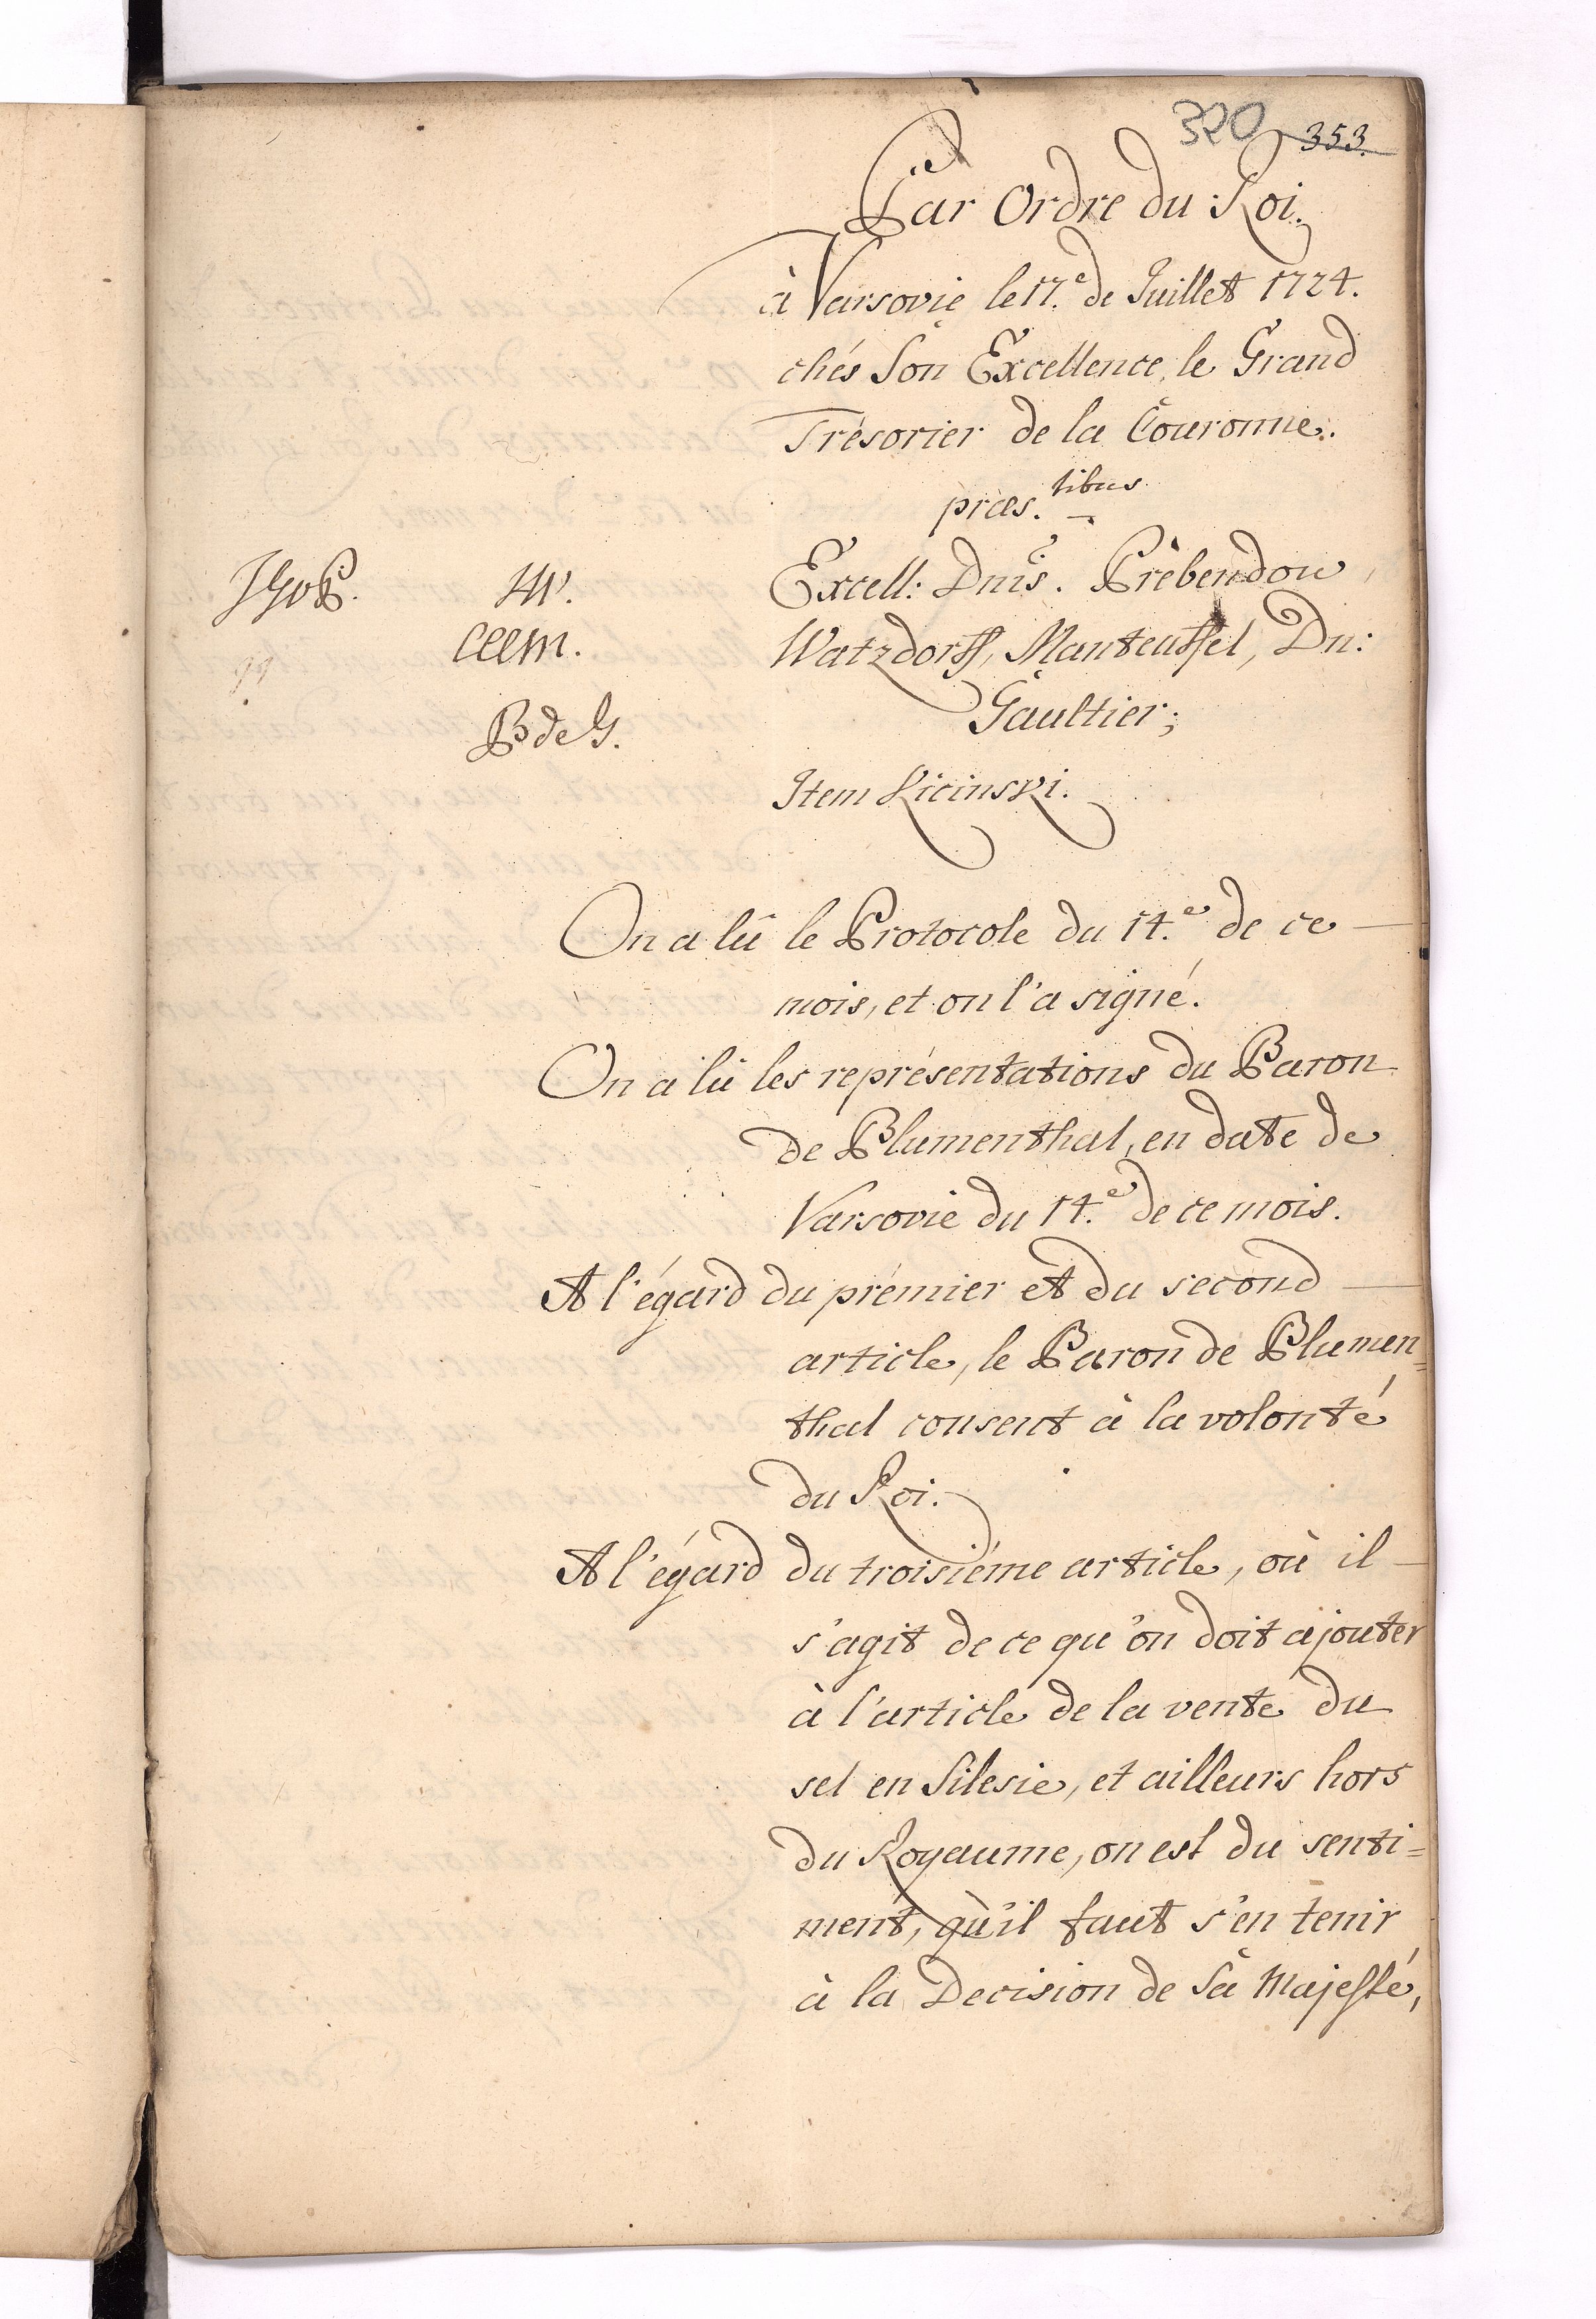 320 353.
Par Ordre du Roi.
à Varsovie le 17.e de Juillet 1724.
chés Son Excellence, le Grand
Trésorier de la Couronne.
præs. tibus
Excell: Dnis. Prébendow,
Watzdorff, Manteuffel, Dn:
Gaultier;
Item Kicinski.
JGvP. W.
CEEM.
B de G.
On a lû le Protocole du 14.e de ce
mois, et on l'a signé.
On a lû les représentations du Baron
de Blumenthal, en date de
Varsovie du 14.e de ce mois.
A l'égard du prémier et du second
article, le Baron de Blumen=
thal consent à la volonté
du Roi.
A l'égard du troisiéme article, où il
s'agit de ce qu'on doit ajouter
à l'article de la vente du
sel en Silesie, et ailleurs hors
du Royaume, on est du senti=
ment, qu'il faut s'en tenir
à la Decision de Sa Majesté,